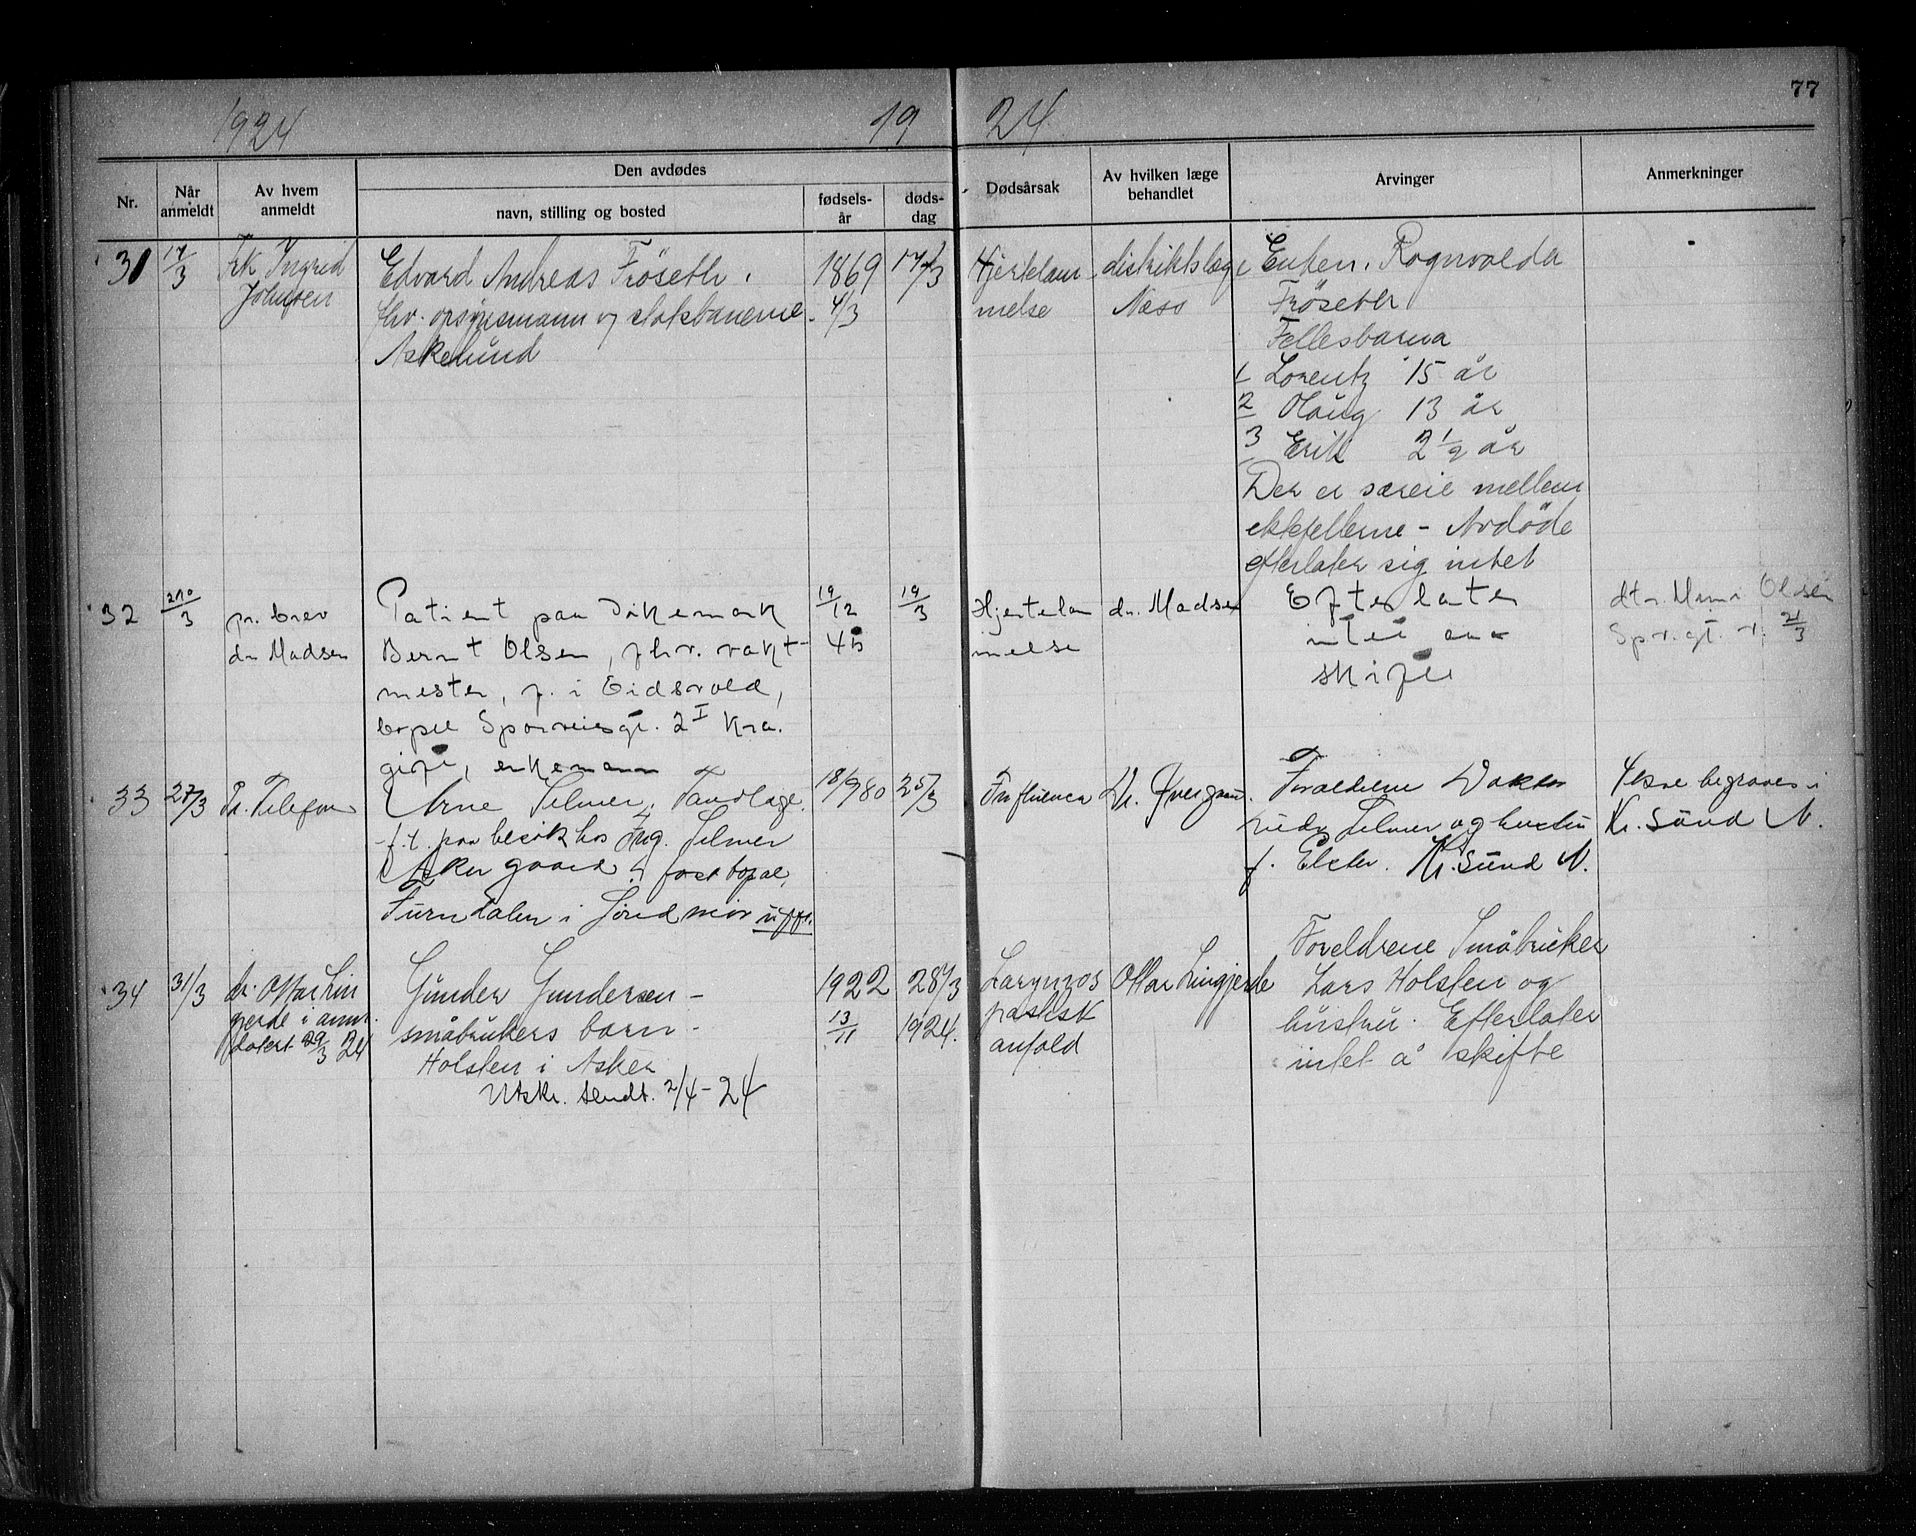 77
1924
19 24
Nr.
Når anmeldt
Av hvem anmeldt
Den avdødes
navn, stilling og bosted
fødsels-år
døds-dag
Dødsårsak
Av hvilken læge behandlet
Arvinger
Anmerkninger
31
17/3
Frk Ingrid
Johnsen
Edvard Andreas Fröseth.
fhv. opsynsmann og statsbanerne
Askelund
1869
4/3
17/3
Hjertelam-
melse
distriktslæge
Næss
Enken. Rognvalda
Fröseth
Fellesbarna
1 Lorentz 15 år
2 Olaug 13 år
3 Erik 2 1/2 år
Der er særeie mellem
ektefellerne - Avdöde
efterlater sig intet
32
20/3
pr. brev
dr Madsen
Patient paa Dikemark
Bernt Olsen, fhv. vakt-
mester, f. i Eidsvold,
bopel Sporveisgt. 2 I Kra.
gift, enkemann
19/12
45
19/3
Hjertelam
melse
dr. Madsen
Efterlater
intet aa
skifte
dtr. Olsen
Sprv.gt. 21/3
33
27/3
Pr. Telefon
Arne Selmer, Tandlæge.
f.t. paa besök hos Ing. Selmer
Asker gaard. fast bopæl,
Surndalen i Söndmör ugift.
18/9 80
25/3
Influenca
Dr.
Foreldrene Doktor
Selmer og hustru
f. Elster. Kr. Sund N.
begraves i
Kr. Sund N.
34
31/3
dr. Ottar Lin
gjerde i anm.
datert 29/3 24
Gunder Gundersen -
småbrukers barn -
Holsten i Asker
Utskr. sendt. 2/4 - 24
1922
13/11
28/3
1924.
Laryngos
pastisk
anfald
Ottar Lingjerde
Foreldrene Småbruker
Lars Holsten og
hustru. Efterlater
intet å skifte